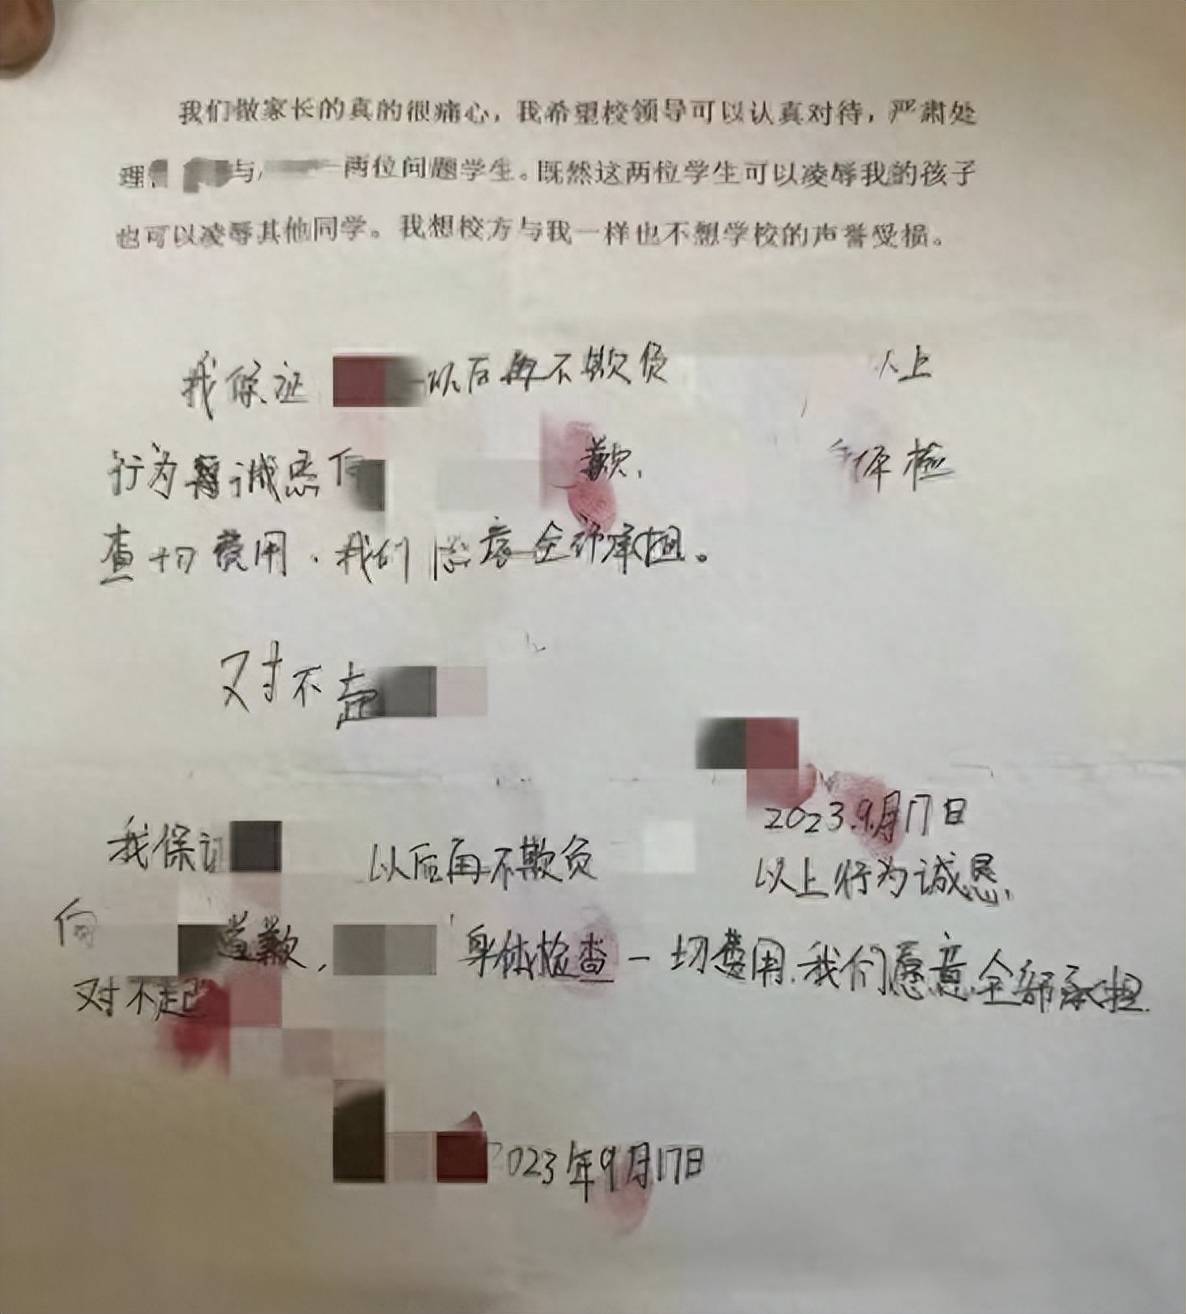 我们做家长的真的很痛心，我希望校领导可以认真对待，严肃处
理 与 两位问题学生。既然这两位学生可以凌辱我的孩子
也可以凌辱其他同学。我想校方与我一样也不想学校的声誉受损。
我保证 以后再不欺负 以上
行为 诚恳 歉， 体检
查一切费用，我们 全部承担。
对不起
2023.9月17日
我保证 以后再不欺负 以上行为诚恳，
向 道歉， 身体检查一切费用，我们愿意全部承担
对不起
2023年9月17日